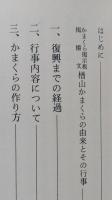 はじめに
かまくら掲示板
掲揚文
楢山かまくらの由来とその行事
一、復興までの経過
二、行事内容について
三、かまくらの作り方